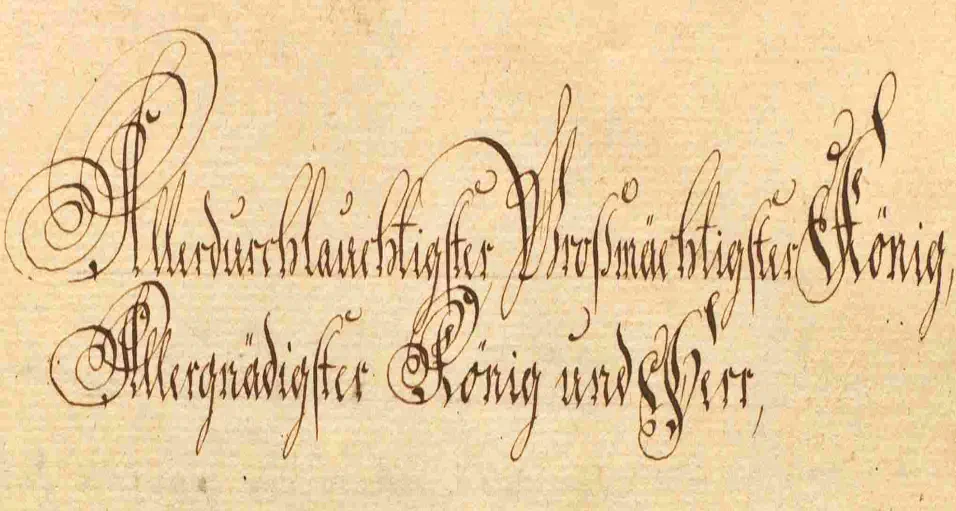 Allerdurchlauchtigster, Großmächtigster König,
Allergnädigster König und Herr,